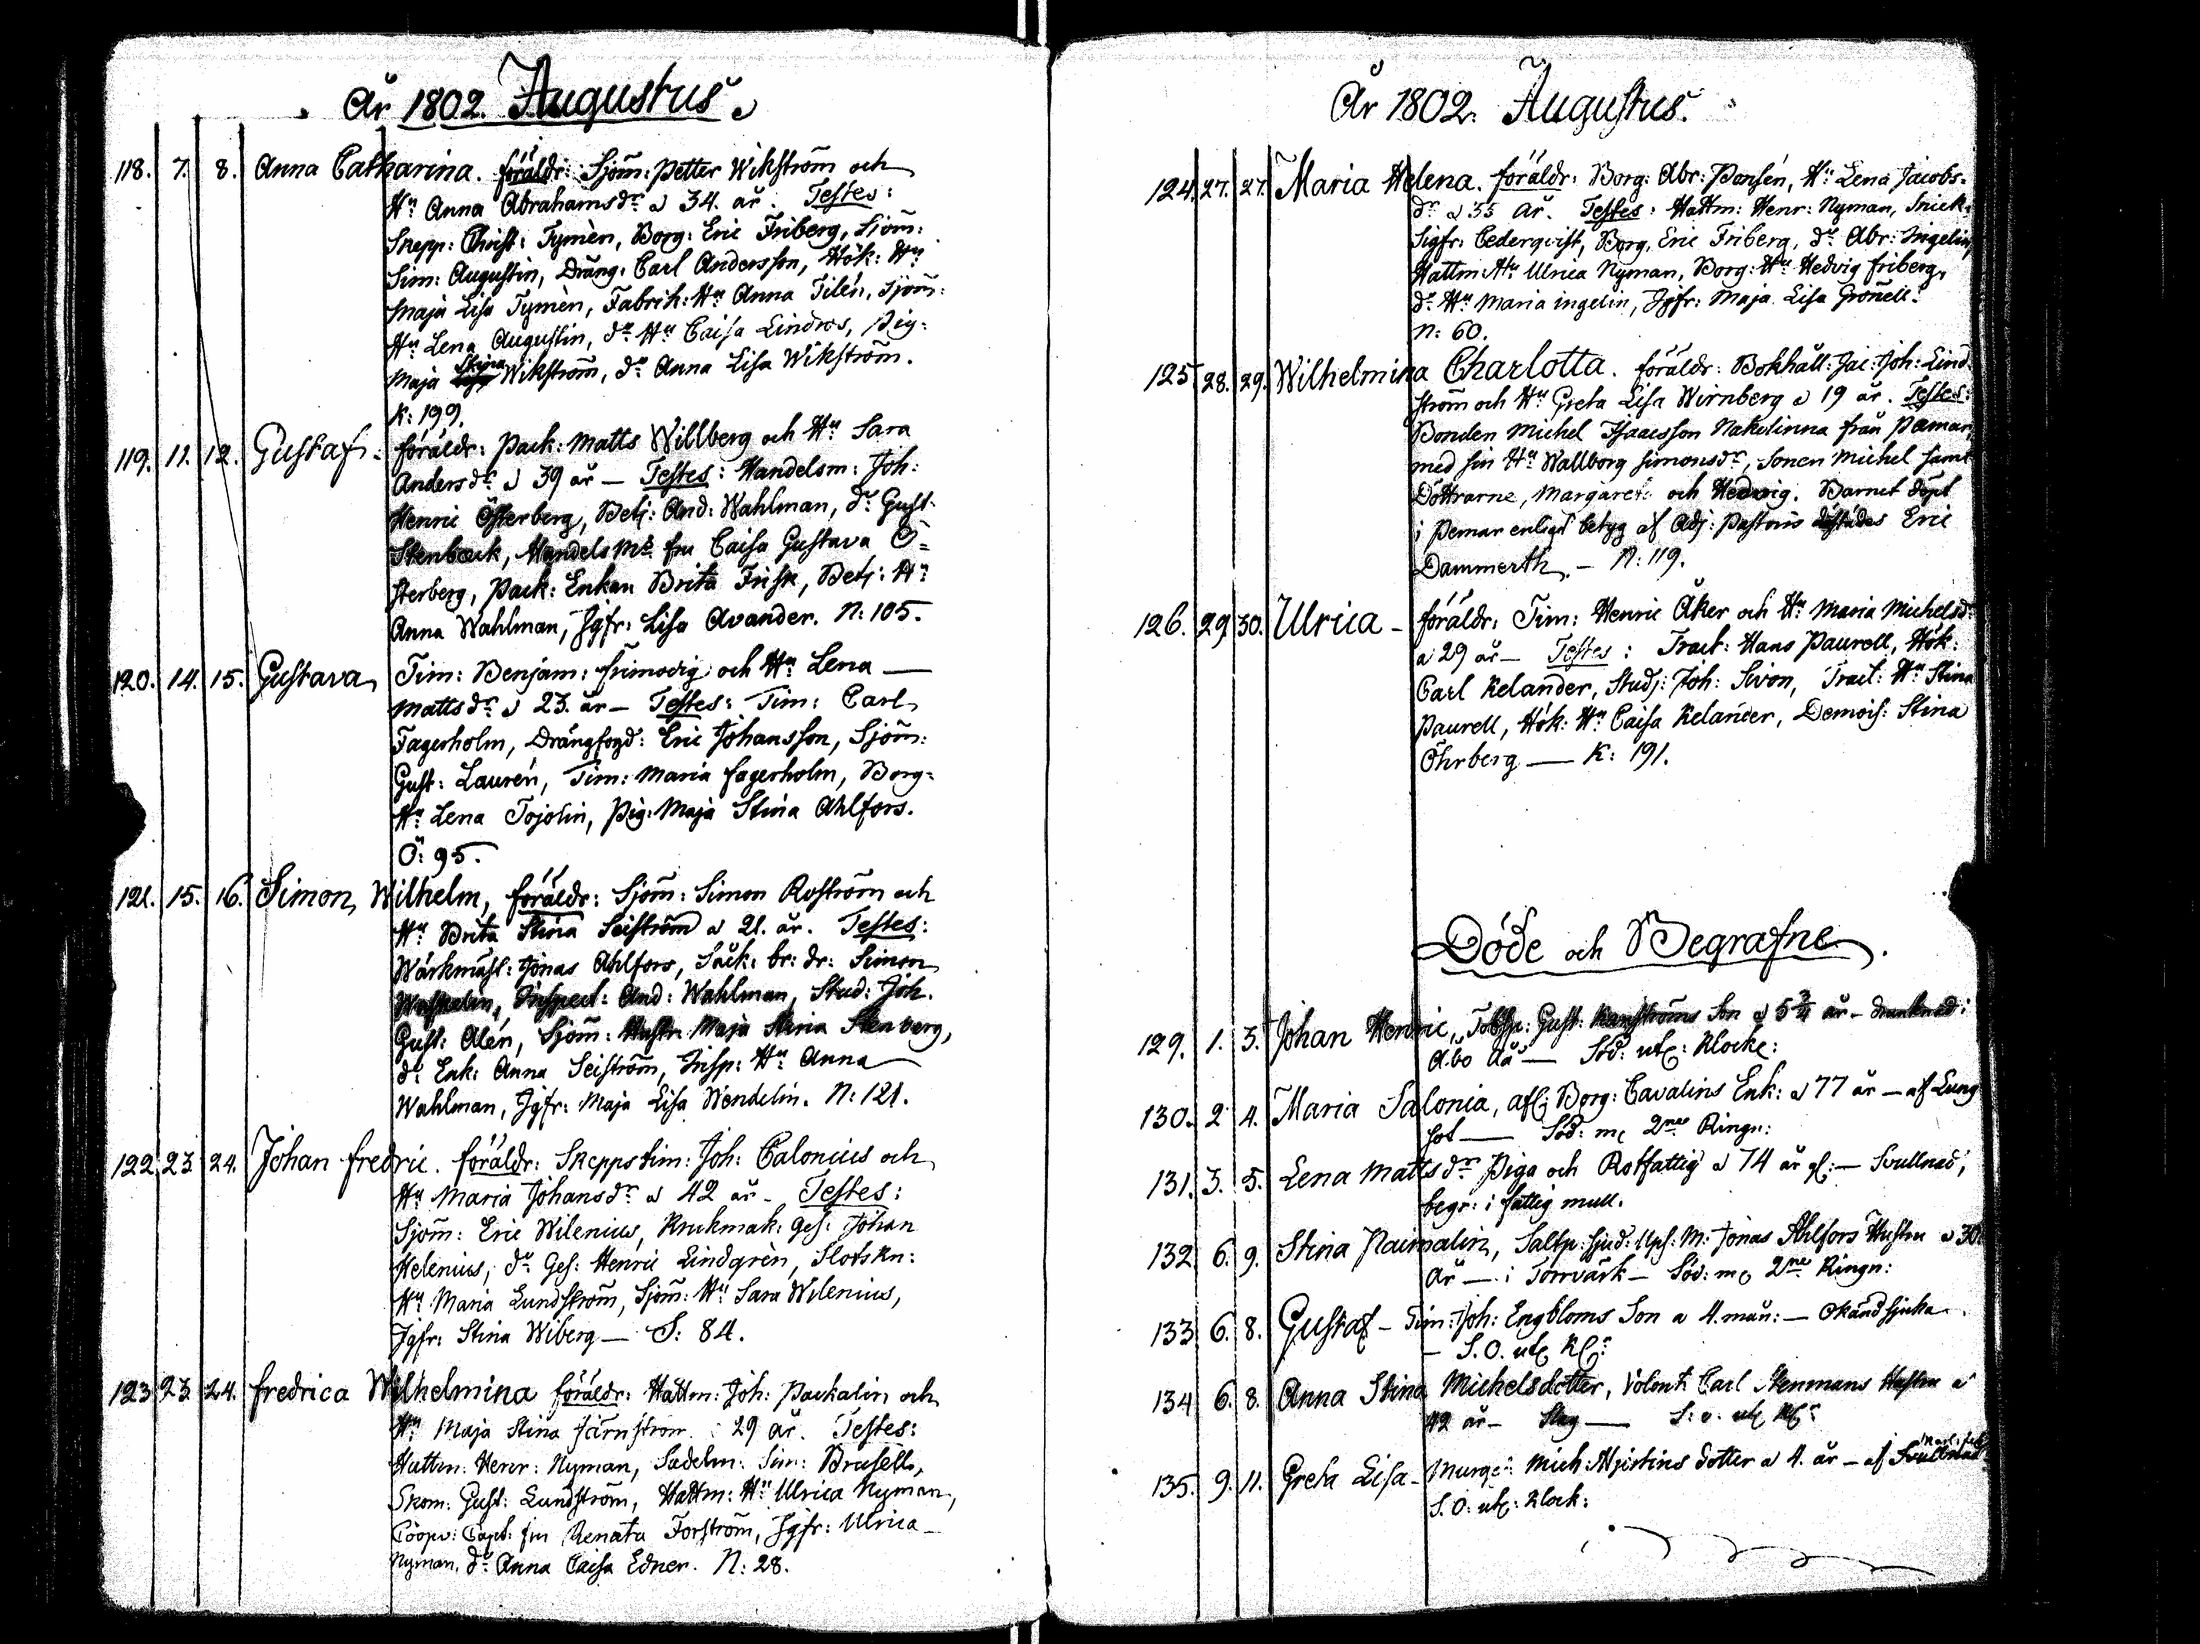 År 1802. Augustus.
118. 7. 8. Anna Catharina. föräldr: Sjöm: Petter Wikström och
Hu Anna Abrahamsdr a 34. år. Testes:
Skepp: Christ: Tymèn, Borg: Eric Friberg, Sjöm:
Sim: Augustin, Dräng: Carl Andersson, Hök: Hu
Maja Lisa Tymèn, Fabrik: Hu Anna Tilén, Sjöm:
Hu Lena Augustin, do Hu Caisa Lindros, Pig:
Maja Stina Wikström, do Anna Lisa Wikström.
K: 199.
119. 11. 12. Gustaf. föräldr: Pack: Matts Willberg och Hu Sara
Andersdr a 39 år — Testes: Handelsm: Joh:
Henric Österberg, Betj: And: Wahlman, do Gust.
Stenback, Handelsms fru Caisa Gustava Ö=
sterberg, Pack: Enkan Brita Frisk, Betj: Hu
Anna Wahlman, Jgfr: Lisa Avander. N: 105.
120. 14. 15. Gustava Tim: Benjam: frimodig och Hu Lena —
Mattsdr a 23. år — Testes: Tim: Carl
Fagerholm, Drängfogd: Eric Johansson, Sjöm:
Gust: Laurén, Tim: Maria fagerholm, Borg=
Hu Lena Tojolin, Pig: Maja Stina Ahlfors.
Ö: 95.
121. 15. 16. Simon Wilhelm, föräldr: Sjöm: Simon Roström och
Hu Brita Stina Seiström a 21. år. Testes:
Wärkmäst: Jonas Ahlfors, Säck: br: dr: Simon
Inspect: And: Wahlman, Stud: Joh.
Gust: Alén, Sjöm: Hustr Maja Stina Stenberg,
do Enk: Anna Seiström, Insp: Hu Anna
Wahlman, Jgfr: Maja Lisa Wendelin. N: 121.
122. 23. 24. Johan fredric. föräldr: Skeppstim: Joh: Calonius och
Hu Maria Johansdr a 42 år - Testes:
Sjöm: Eric Wilenius, Krukmak: Ges: Johan
Helenius, do Ges: Henric Lindgrèn, Slotskn:
Hu Maria Lundström, Sjöm: Hu Sara Wilenius,
Jgfr: Stina Wiberg — S: 84.
123 23. 24. fredrica Wilhelmina föräldr: Hattm: Joh: Packalin och
Hu Maja Stina Järnström 29 år. Testes:
Hattm: Henr: Nyman, Sadelm: Sim: Brusell,
Skom: Gust: Lundström, Hattm: Hu Ulrica Nyman,
Coopv: Capt: fru Renata Forström, Jgfr: Ulrica
Nyman, do Anna Caisa Edner. N: 28.
År 1802. Augustus.
124. 27. 27. Maria Helena. föräldr: Borg: Abr: Pansén, Hu Lena Jacobs-
dr a 35 år. Testes: Hattm: Henr: Nyman, Snick:
Sigfr: Cederqvist, Borg, Eric Friberg, do Abr: Ingelin,
Hattm: Hu Ulrica Nyman, Borg: Hu Hedvig friberg,
do Hu Maria ingelin, Jgfr: Maja Lisa Grönell.
N: 60.
125 28. 29. Wilhelmina Charlotta. föräldr: Bokhåll: Jac: Joh: Lind
ström och Hu Greta Lisa Wirnberg a 19 år. Testes:
Bonden Michel Isaacsson Nakolinna från Pemar,
med sin Hu Wallborg Simonsdr, Sonen Michel samt
Döttrarne, Margaret: och Hedwig. Barnet döpt
i Pemar enligt betyg af Adj: Pastoris dästädes Eric
Dammerth. — N: 119.
126. 29 30. Ulrica - föräldr: Tim: Henric Åker och Hu Maria Michelsd
a 29 år — Testes: Tract: Hans Paurell, Hök:
Carl Kelander, Studj: Joh: Sivon, Tract: Hu Stina
Paurell, Hök: Hu Caisa Kelander, Demois: Stina
Öhrberg — K: 191.
Döde och Begrafne.
129. 1. 3. Johan Henric, Tobsp: Gust: Son a 5 3/4 år - drunknad i
Åbo Åå — Söd: utg: Klocke:
130. 2 4. Maria Salonia, afl: Borg: Cavalins Enk: a 77 år — af Lung
sot — Söd: mg 2ne Ringn:
131. 3. 5. Lena Mattsdr Piga och Rotfattig a 74 år gl: — Svullnad,
begr: i fattig mull.
132 6. 9. Stina Paimalin, Saltp: Sjud: Ups: M: Jonas Ahlfors Hustru a 30.
år — i Torrvärk — Söd: mg 2ne Ringn:
133 6. 8. Gustaf - Tim: Joh: Engbloms Son a 4. mån: — Okänd sjuka
— S. O. utg Kl:
134 6. 8. Anna Stina Michelsdotter, Volont: Carl Stenmans Hustru a
42 år — Slag — S: o. utg Kl:
135. 9. 11. Greta Lisa - Murge: Mich: Hjortins dotter a 4. år — af
S. O: utg: Klock: